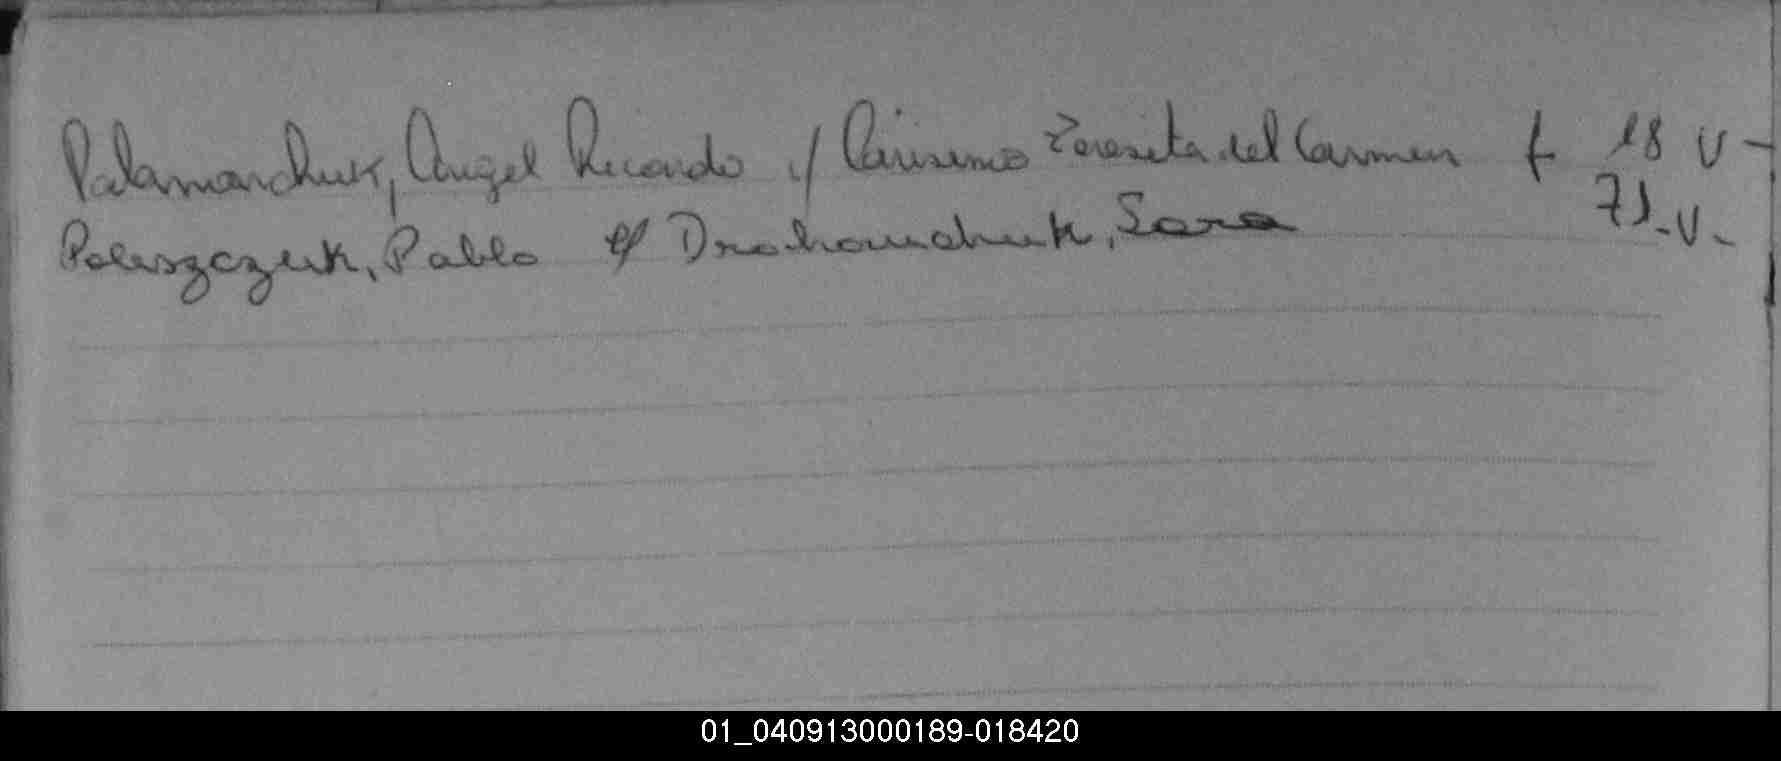 Palamarchuk, Angel Ricardo c/ Carisimo Teresita del Carmen f 18 V -
Poleszczuk, Pablo c/ Drahomchuk, Sara 71 - V -
01_040913000189-018420